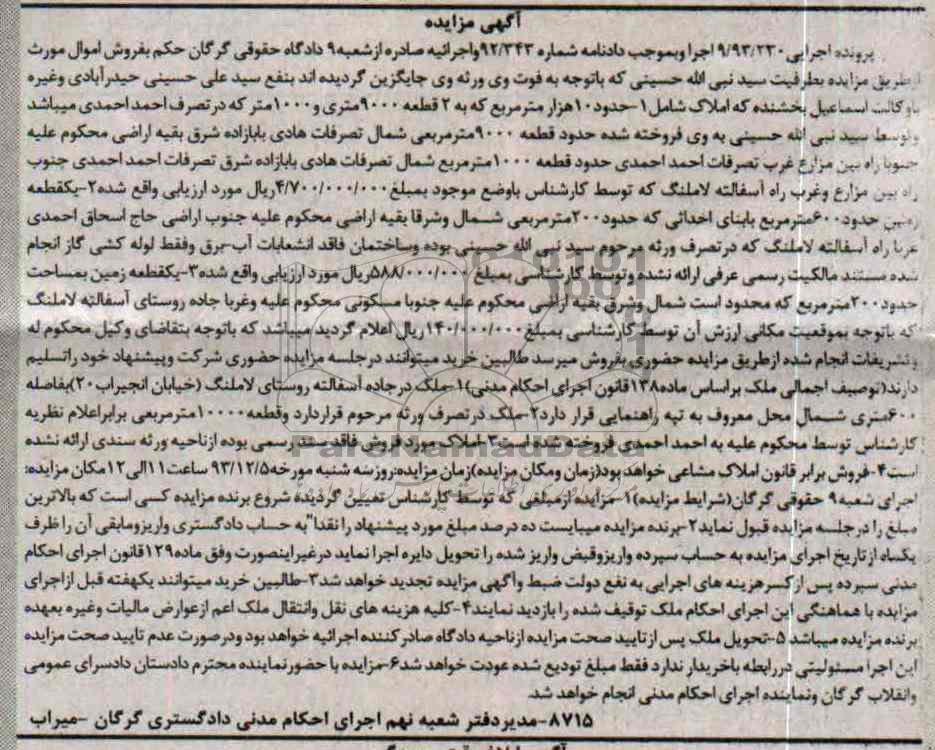 آگهی مزایده
پرونده اجرایی ۹/۹۳/۲۳۰ اجرا وبموجب دادنامه شماره ۹۲/۳۴۳واجرائیه صادره ازشعبه۹ دادگاه حقوقی گرگان حکم بفروش اموال مورث
ازطریق مزایده بطرفیت سید نبی الله حسینی که باتوجه به فوت وی ورثه وی جایگزین گردیده اند بنفع سید علی حسینی حیدرآبادی وغیره
باوکالت اسماعیل بخشنده که املاک شامل۱-حدود۱۰هزار مترمربع که به ۲ قطعه ۹۰۰۰متری و۱۰۰۰متر که درتصرف احمد احمدی میباشد
وتوسط سید نبی الله حسینی به وی فروخته شده حدود قطعه ۹۰۰۰مترمربعی شمال تصرفات هادی بابازاده شرق بقیه اراضی محکوم علیه
جنوبا راه بین مزارع غرب تصرفات احمد احمدی حدود قطعه ۱۰۰۰مترمربع شمال تصرفات هادی بابازاده شرق تصرفات احمد احمدی جنوب
راه بین مزارع وغرب راه آسفالته لاملنگ که توسط کارشناس باوضع موجود بمبلغ۴/۷۰۰/۰۰۰/۰۰۰ریال مورد ارزیابی واقع شده۲-یکقطعه
زمین حدود۶۰۰مترمربع بابنای احداثی که حدود۲۰۰مترمربعی شمال وشرقا بقیه اراضی محکوم علیه جنوب اراضی حاج اسحاق احمدی
غربا راه آسفالته لاملنگ که درتصرف ورثه مرحوم سید نبی الله حسینی بوده وساختمان فاقد انشعابات آب-برق وفقط لوله کشی گاز انجام
شده مستند مالکیت رسمی عرفی ارائه نشده وتوسط کارشناسی بمبلغ ۵۸۸/۰۰۰/۰۰۰ریال مورد ارزیابی واقع شده۳-یکقطعه زمین بمساحت
حدود۲۰۰مترمربع که محدود است شمال وشرق بقیه اراضی محکوم علیه جنوبا مسکونی محکوم علیه وغربا جاده روستای آسفالته لاملنگ
که باتوجه بموقعیت مکانی ارزش آن توسط کارشناسی بمبلغ۱۴۰/۰۰۰/۰۰۰ریال اعلام گردید میباشد که باتوجه بتقاضای وکیل محکوم له
وتشریفات انجام شده ازطریق مزایده حضوری بفروش میرسد طالبین خرید میتوانند درجلسه مزایده حضوری شرکت وپیشنهاد خود راتسلیم
دارند(توصیف اجمالی ملک براساس ماده۱۳۸قانون اجرای احکام مدنی)۱-ملک درجاده آسفالته روستای لاملنگ (خیابان انجیراب۲۰)بفاصله
۶۰۰متری شمال محل معروف به تپه راهنمایی قرار دارد۲-ملک درتصرف ورثه مرحوم قراردارد وقطعه۱۰۰۰۰مترمربعی برابراعلام نظریه
کارشناس توسط محکوم علیه به احمد احمدی فروخته شده است۳-املاک مورد فروش فاقد سند رسمی بوده ازناحیه ورثه سندی ارائه نشده
است۴-فروش برابر قانون املاک مشاعی خواهد بود(زمان ومکان مزایده)زمان مزایده:روزسه شنبه مورخه۹۳/۱۲/۵ ساعت۱۱الی۱۲مکان مزایده:
اجرای شعبه۹ حقوقی گرگان(شرایط مزایده)۱-مزایده ازمبلغی که توسط کارشناس تعیین گردیده شروع برنده مزایده کسی است که بالاترین
مبلغ را درجلسه مزایده قبول نماید۲-برنده مزایده میبایست ده درصد مبلغ مورد پیشنهاد را نقدا"به حساب دادگستری واریزومابقی آن را ظرف
یکماه ازتاریخ اجرای مزایده به حساب سپرده واریزوقبض واریز شده را تحویل دایره اجرا نماید درغیراینصورت وفق ماده۱۲۹قانون اجرای احکام
مدنی سپرده پس ازکسرهزینه های اجرایی به نفع دولت ضبط وآگهی مزایده تجدید خواهد شد۳-طالبین خرید میتوانند یکهفته قبل ازاجرای
مزایده با هماهنگی این اجرای احکام ملک توقیف شده را بازدید نمایند۴-کلیه هزینه های نقل وانتقال ملک اعم ازعوارض مالیات وغیره بعهده
برنده مزایده میباشد ۵-تحویل ملک پس ازتایید صحت مزایده ازناحیه دادگاه صادرکننده اجرائیه خواهد بود ودرصورت عدم تایید صحت مزایده
این اجرا مسئولیتی دررابطه باخریدار ندارد فقط مبلغ تودیع شده عودت خواهد شد۶-مزایده با حضورنماینده محترم دادستان دادسرای عمومی
وانقلاب گرگان ونماینده اجرای احکام مدنی انجام خواهد شد.
۸۷۱۵-مدیردفتر شعبه نهم اجرای احکام مدنی دادگستری گرگان -میراب
ParsNamadData